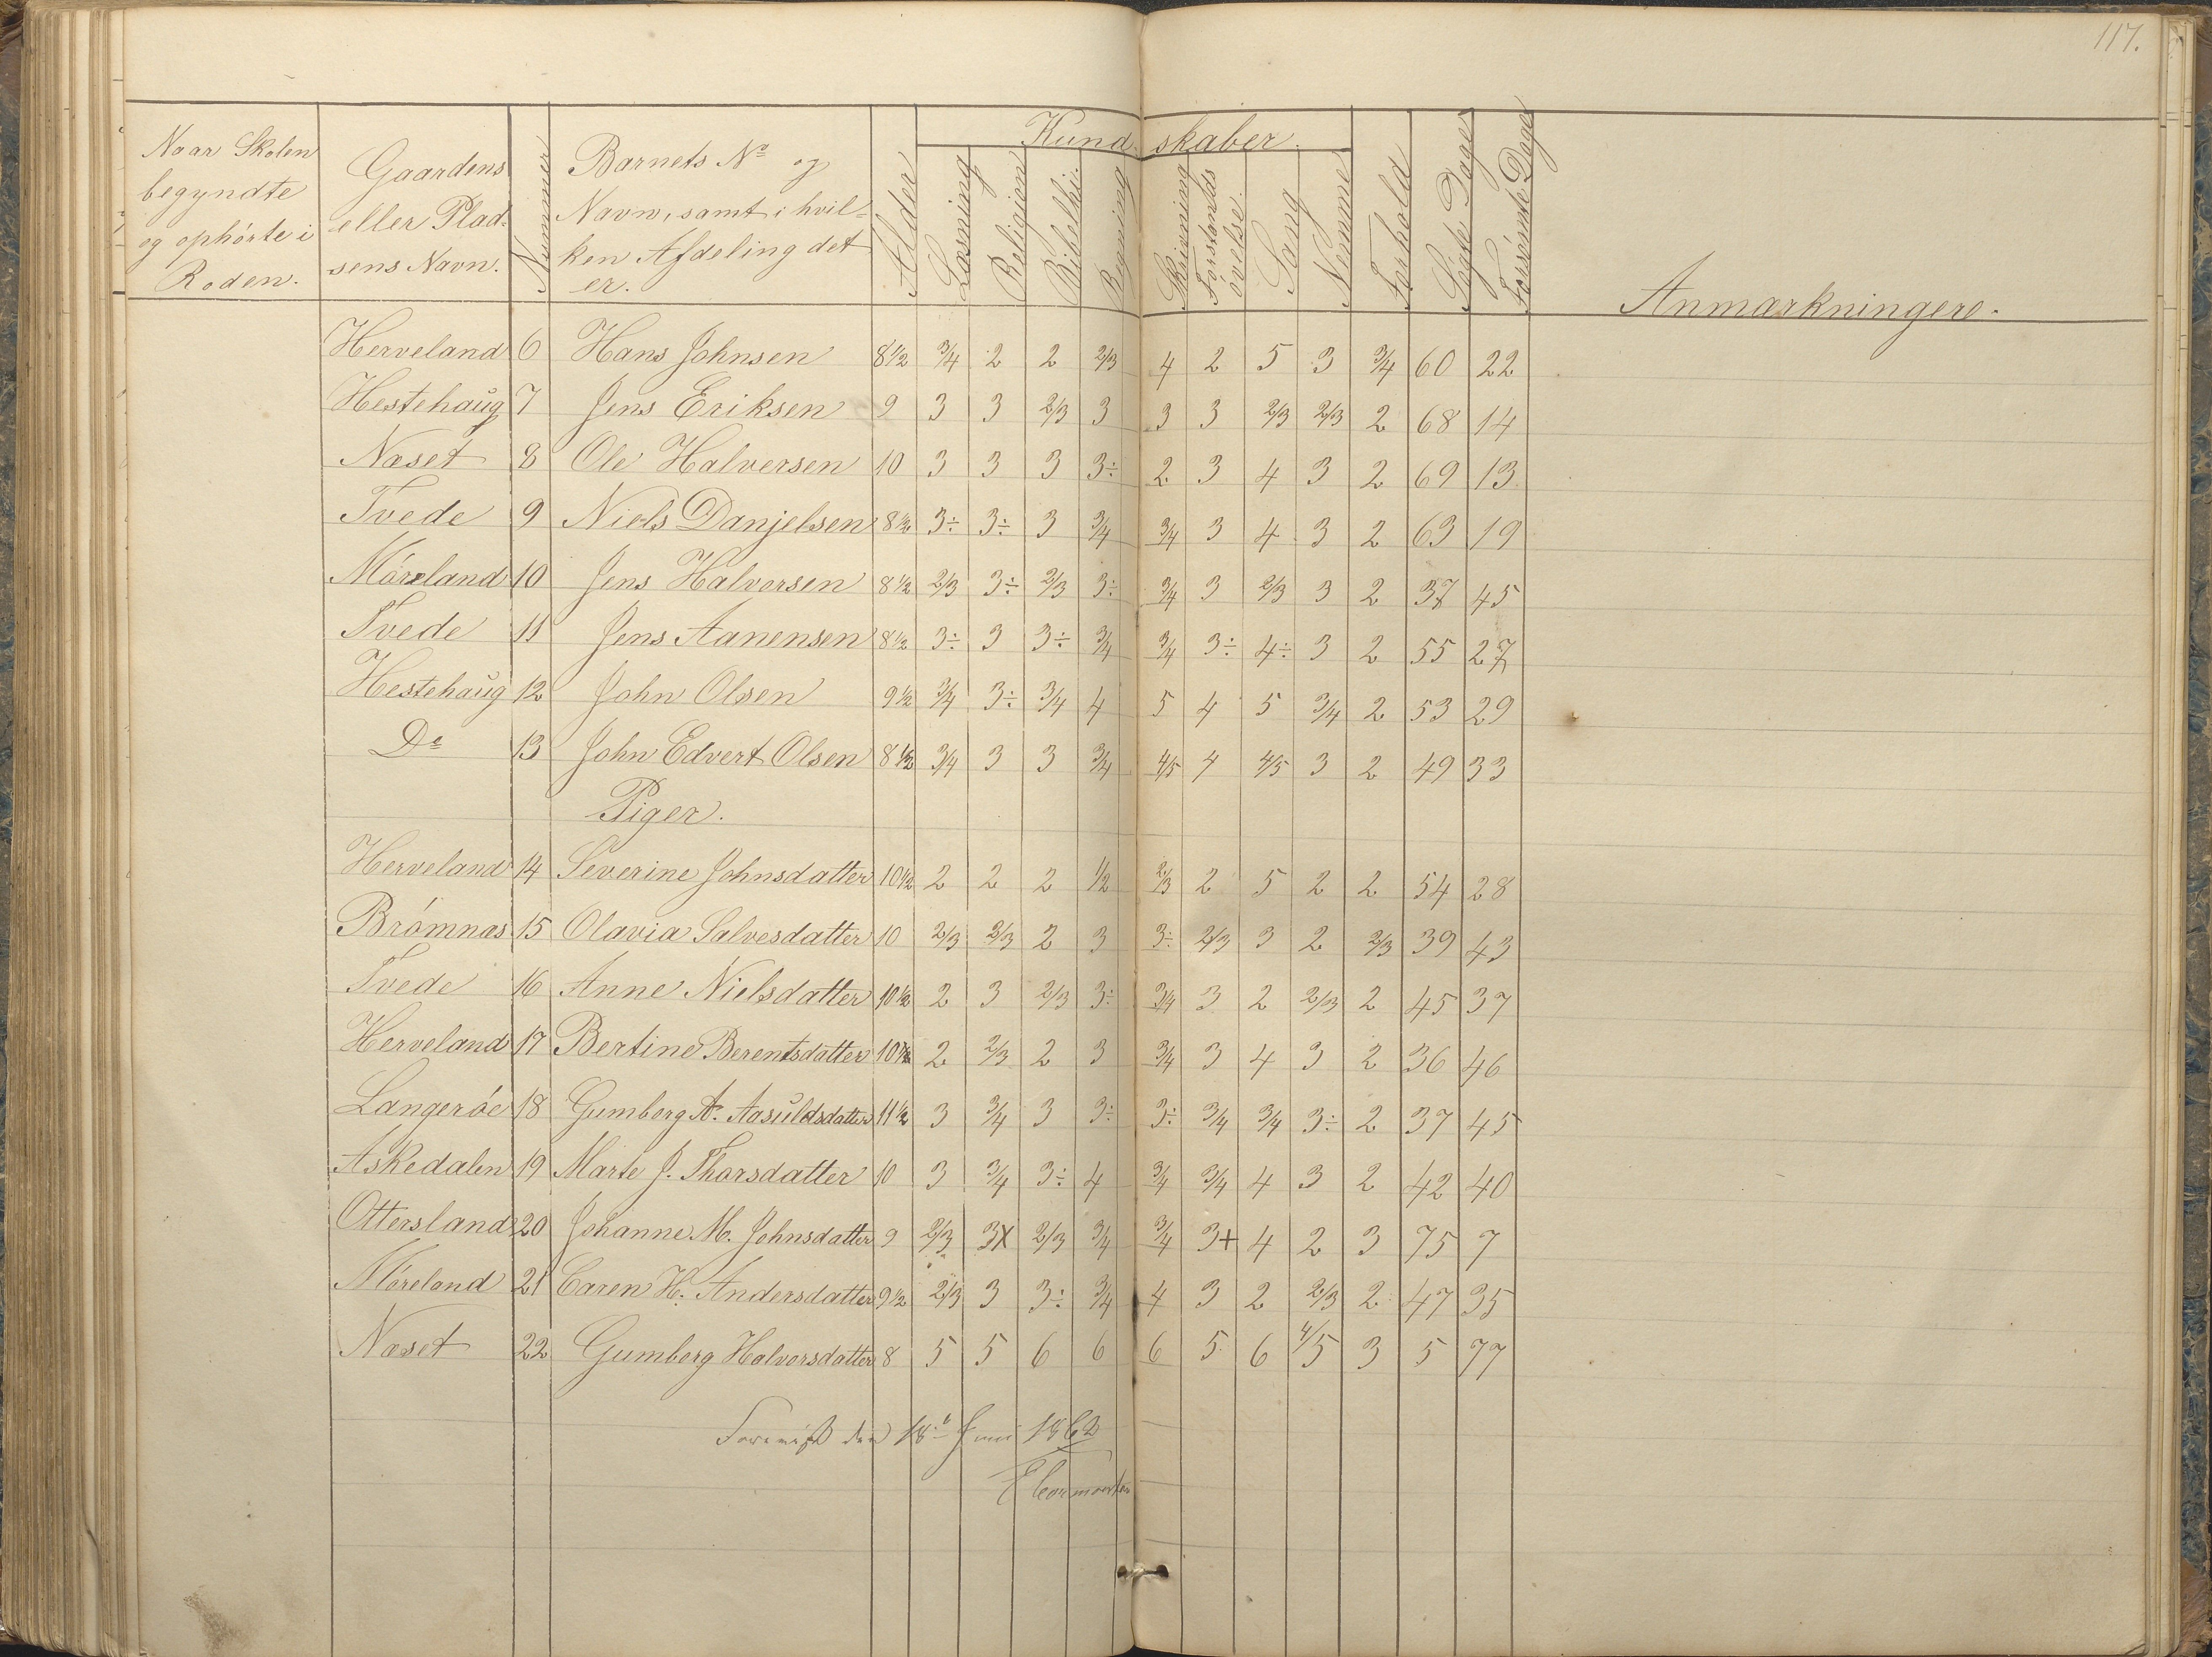 117.
Naar Skolen begyndte og ophórte i Roden.
Gaardens eller Pladsens Navn.
Nummer
Barnets No og Navn, samt i hvilken Afdeling det er.
Alder
Kundskaber.
Læsning
Religion
Bibelhi.
Regning
Skrivning
Forstands óvelse.
Sang
Nemme
Forhold
Sógte Dage
Forsómte Dage
Anmærkninger.
Herveland 6 Hans Johnsen 8 1/2 3/4 2 2 2/3 4 2 5 3 3/4 60 22
Hestehaug 7 Jens Eriksen 9 3 3 2/3 3 3 3 2/3 2/3 2 68 14
Næset 8 Ole Halversen 10 3 3 3 3÷ 2 3 4 3 2 69 13
Tvede 9 Niels Danjelsen 8 1/2 3÷ 3÷ 3 3/4 3/4 3 4 3 2 63 19
Móreland 10 Jens Halvorsen 8 1/2 2/3 3÷ 2/3 3÷ 3/4 3 2/3 3 2 37 45
Tvede 11 Jens Aanensen 8 1/2 3÷ 3 3÷ 3/4 3/4 3÷ 4÷ 3 2 55 27
Hestehaug 12 John Olsen 9 1/2 3/4 3÷ 3/4 4 5 4 5 3/4 2 53 29
Do 13 John Edvert Olsen 8 1/2 3/4 3 3 3/4 4/5 4 4/5 3 2 49 33
Piger.
Herveland 14 Severine Johnsdatter 10 1/2 2 2 2 1/2 2/3 2 5 2 2 54 28
Brómnæs 15 Olavia Salvesdatter 10 2/3 2/3 2 3 3÷ 2/3 3 2 2/3 39 43
Tvede 16 Anne Nielsdatter 10 1/2 2 3 2/3 3÷ 3/4 3 2 2/3 2 45 37
Herveland 17 Bertine Berentsdatter 10 1/2 2 2/3 2 3 3/4 3 4 3 2 36 46
Langeróe 18 Gumborg A. Aasuldsdatter 11 1/2 3 3/4 3 3÷ 3÷ 3/4 3/4 3÷ 2 37 45
Askedalen 19 Marte J. Thorsdatter 10 3 3/4 3÷ 4 3/4 3/4 4 3 2 42 40
Ottersland 20 Johanne M. Johnsdatter 9 2/3 3x 2/3 3/4 3/4 3+ 4 2 3 75 7
Móreland 21 Caren H. Andersdatter 9 1/2 2/3 3 3÷ 3/4 4 3 2 2/3 2 47 35
Næset 22 Gumborg Halvorsdatter 8 5 5 6 6 6 5 6 4/5 3 5 77
Forevist den 18 Juni 1862